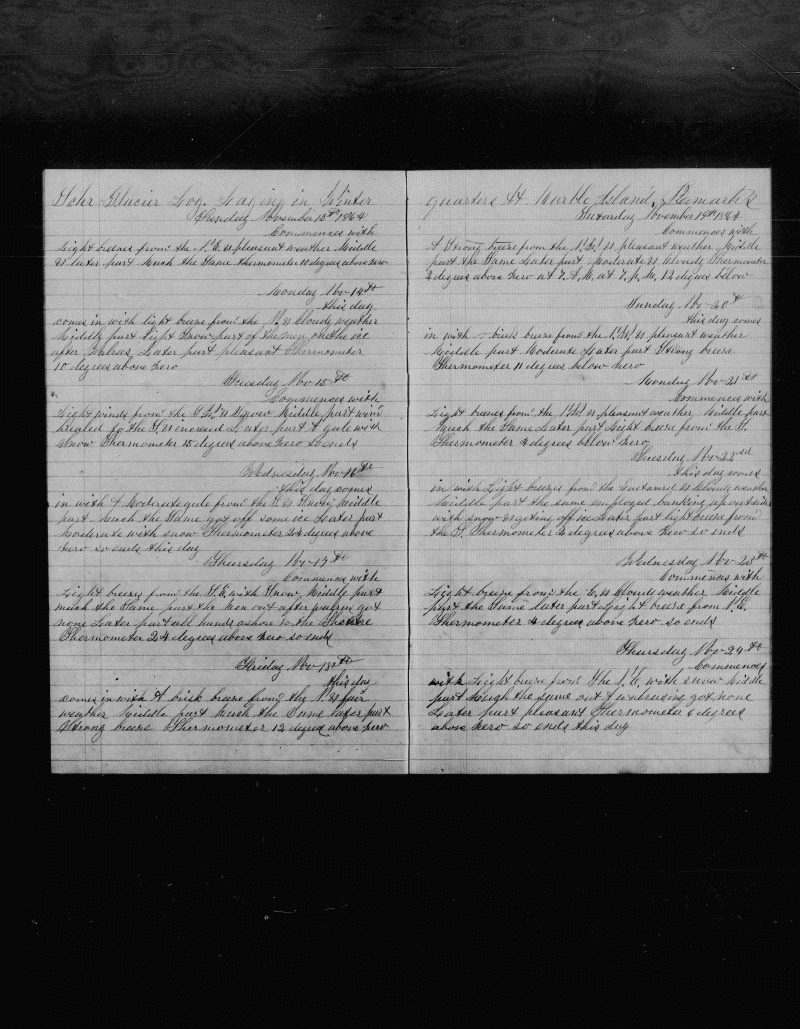 Schr Glacier Log. Laying in Winter
Sunday November 13th 1864
Commences with
Light breses from the N.E. & pleasant weather Middle
& later part Much the Same thermometer 10 degrees above zero
Monday Nov 14th
this day
comes in with light breeze from the N. & Cloudy weather
Middle part light Snow part of the men on the ice
after Walrus Later part pleasant Thermometer
10 degrees above zero
Tuesday Nov 15th
Commences with
Light winds from the & Snow Middle part wind
to the S. & incresed Later part A gale with
Snow Thermometer 15 degrees above zero so ends
Wednesday Nov 16th
this day comes
in with A Moderate gale from the S. & Snow Middle
part Much the Same got off some ice Later part
Moderate with snow Thermometer 24 degrees above
zero so ends this day
Thursday Nov 17th
Commences with
Light breeze from the S.E. with Snow, Middle part
much the Same part the Men out after walrus got
none Later part all hands ashore to the Theatre
Thermometer 24 degrees above zero so ends
Friday Nov 18th
this day
comes in with A brisk breeze from the N. & fair
weather Middle part Much the Same later part
Strong breeze Thermometer 12 degrees above zero
quarters At Marble Island, Remarks
Saturday November 19th 1864
Commences with
A Strong breeze from the N.W. & pleasant weather Middle
part the Same Later part Moderate & cloudy Thermometer
2 degrees above zero at 7. A.M. at 7. P.M. 12 degres below
Sunday Nov 20th
this day comes
in with A brisk breeze from the N.W. & pleasant weather
Middle part Moderate Later part Strong breeze
Thermometer 11 degrees below zero
Monday Nov 21st
Commences with
Light breeze from the N.W. & pleasant weather Middle part
Much the Same Later part Light breeze from the S.
Thermometer 4 degrees below zero
Tuesday Nov 22nd
this day comes
in with Light breeze from the Eastward & Cloudy weather
Middle part the same employed banking up outside
with snow & geting off ice Later part light breeze from
the S. Thermometer 2 degrees above zero so ends
Wednesday Nov 23th
Commences with
Light breeze from the E. & Cloudy weather Middle
part the Same later part Light breeze from N.E.
Thermometer 4 degrees above zero so ends
Thursday Nov 24th
Commences
with Light breeze from the N.E. with snow Middle
part Mugh the same out A walrusing got none
Later part pleasant Thermometer 6 degrees
above zero so ends this day